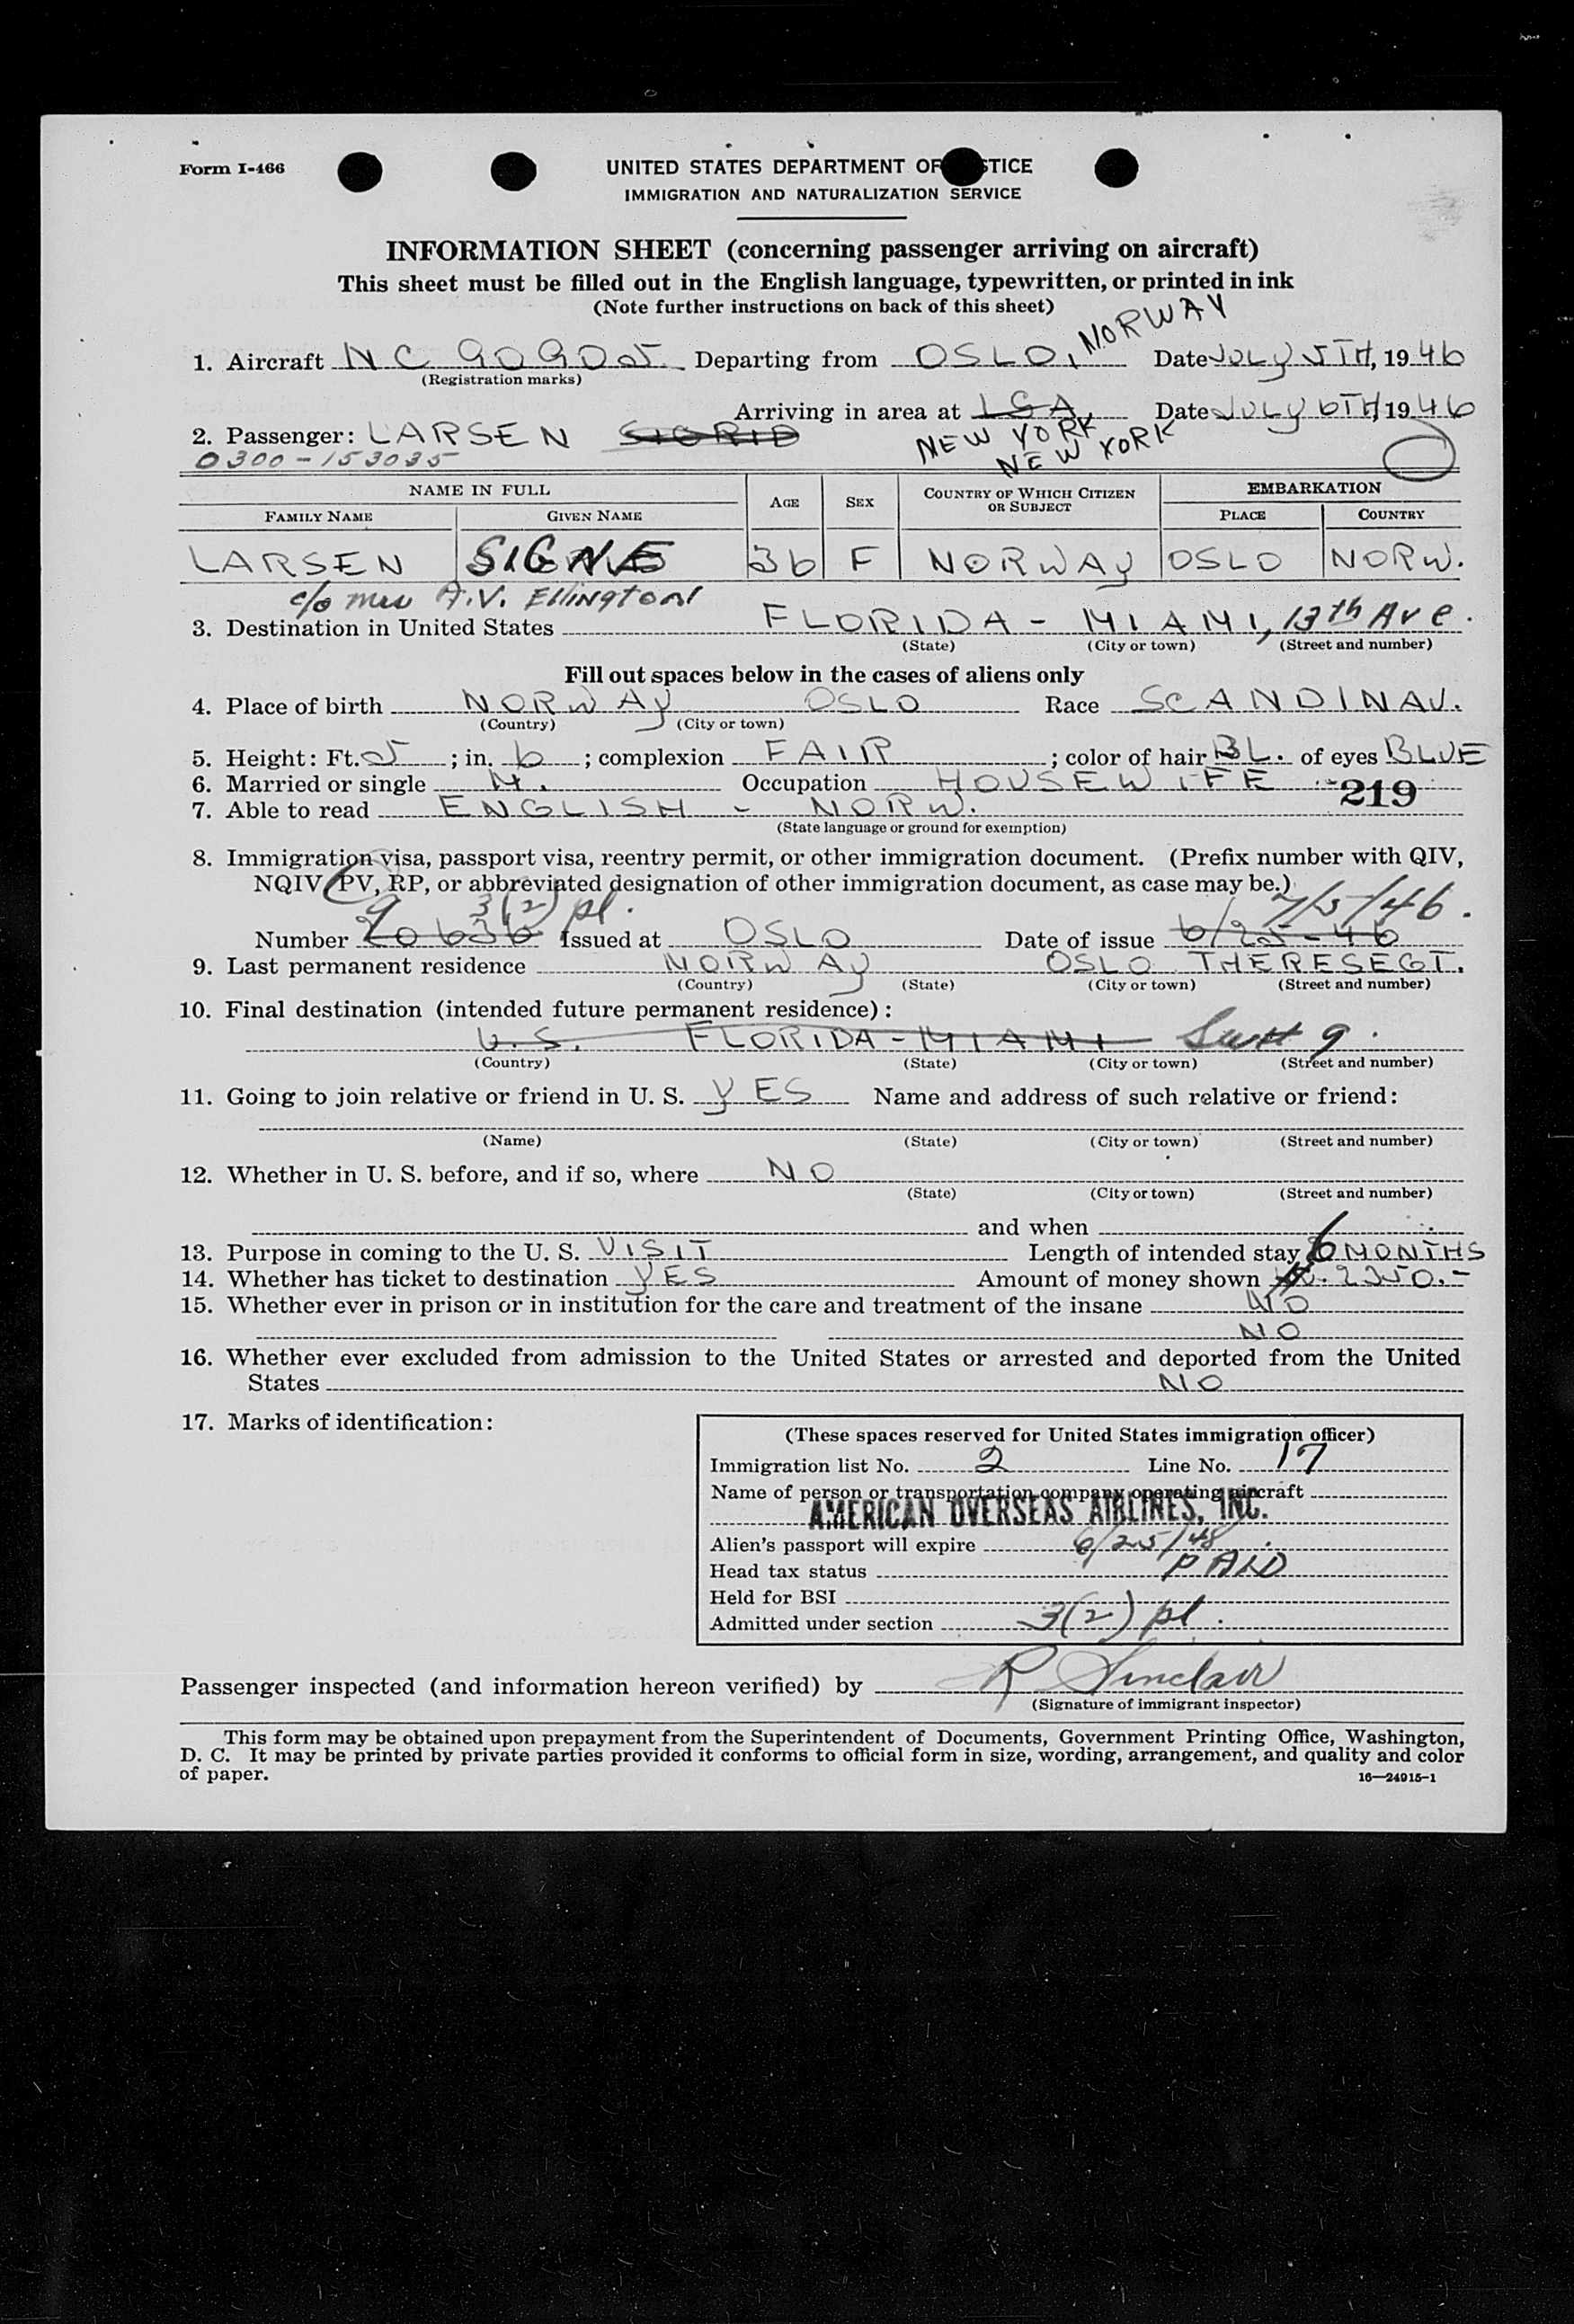 Form I-466
UNITED STATES DEPARTMENT OF JUSTICE
IMMIGRATION AND NATURALIZATION SERVICE
INFORMATION SHEET (concerning passenger arriving on aircraft)
This sheet must be filled out in the English language, typewritten, or printed in ink
(Note further instructions on back of this sheet)
1. Aircraft NC 90905 Departing from OSLO, NORWAY Date JULY 5TH, 1946
(Registration marks)
Arriving in area at LGA, NEW YORK NEW YORK Date JULY 6TH, 1946
2. Passenger: LARSEN SIGRID
0300-153035
NAME IN FULL AGE SEX COUNTRY OF WHICH CITIZEN OR SUBJECT EMBARKATION
FAMILY NAME GIVEN NAME PLACE COUNTRY
LARSEN SIGNE 36 F NORWAY OSLO NORW.
c/o Mrs A.V. Ellington
3. Destination in United States FLORIDA - MIAMI, 13th Ave.
(State) (City or town) (Street and number)
Fill out spaces below in the cases of aliens only
4. Place of birth NORWAY OSLO Race SCANDINAV.
(Country) (City or town)
5. Height: Ft. 5; in. 6; complexion FAIR; color of hair BL. of eyes BLUE
6. Married or single M. Occupation HOUSEWIFE 219
7. Able to read ENGLISH - NORW.
(State language or ground for exemption)
8. Immigration visa, passport visa, reentry permit, or other immigration document. (Prefix number with QIV,
NQIV, PV, RP, or abbreviated designation of other immigration document, as case may be.)
9 3(2) pl. 7/5/46.
Number 20636 Issued at OSLO Date of issue 6/25-46
9. Last permanent residence NORWAY OSLO THERESEGT.
(Country) (State) (City or town) (Street and number)
10. Final destination (intended future permanent residence):
U.S. FLORIDA - MIAMI 9.
(Country) (State) (City or town) (Street and number)
11. Going to join relative or friend in U. S. YES Name and address of such relative or friend:
(Name) (State) (City or town) (Street and number)
12. Whether in U. S. before, and if so, where NO
(State) (City or town) (Street and number)
and when
13. Purpose in coming to the U. S. VISIT Length of intended stay 6 MONTHS
14. Whether has ticket to destination YES Amount of money shown 2350.-
15. Whether ever in prison or in institution for the care and treatment of the insane NO
NO
16. Whether ever excluded from admission to the United States or arrested and deported from the United
States NO
17. Marks of identification:
(These spaces reserved for United States immigration officer)
Immigration list No. 2 Line No. 17
Name of person or transportation company operating aircraft
AMERICAN OVERSEAS AIRLINES, INC.
Alien's passport will expire 6/25/48
Head tax status PAID
Held for BSI
Admitted under section 3(2) pl.
Passenger inspected (and information hereon verified) by R Sinclair
(Signature of immigrant inspector)
This form may be obtained upon prepayment from the Superintendent of Documents, Government Printing Office, Washington,
D. C. It may be printed by private parties provided it conforms to official form in size, wording, arrangement, and quality and color
of paper.
16—24915-1